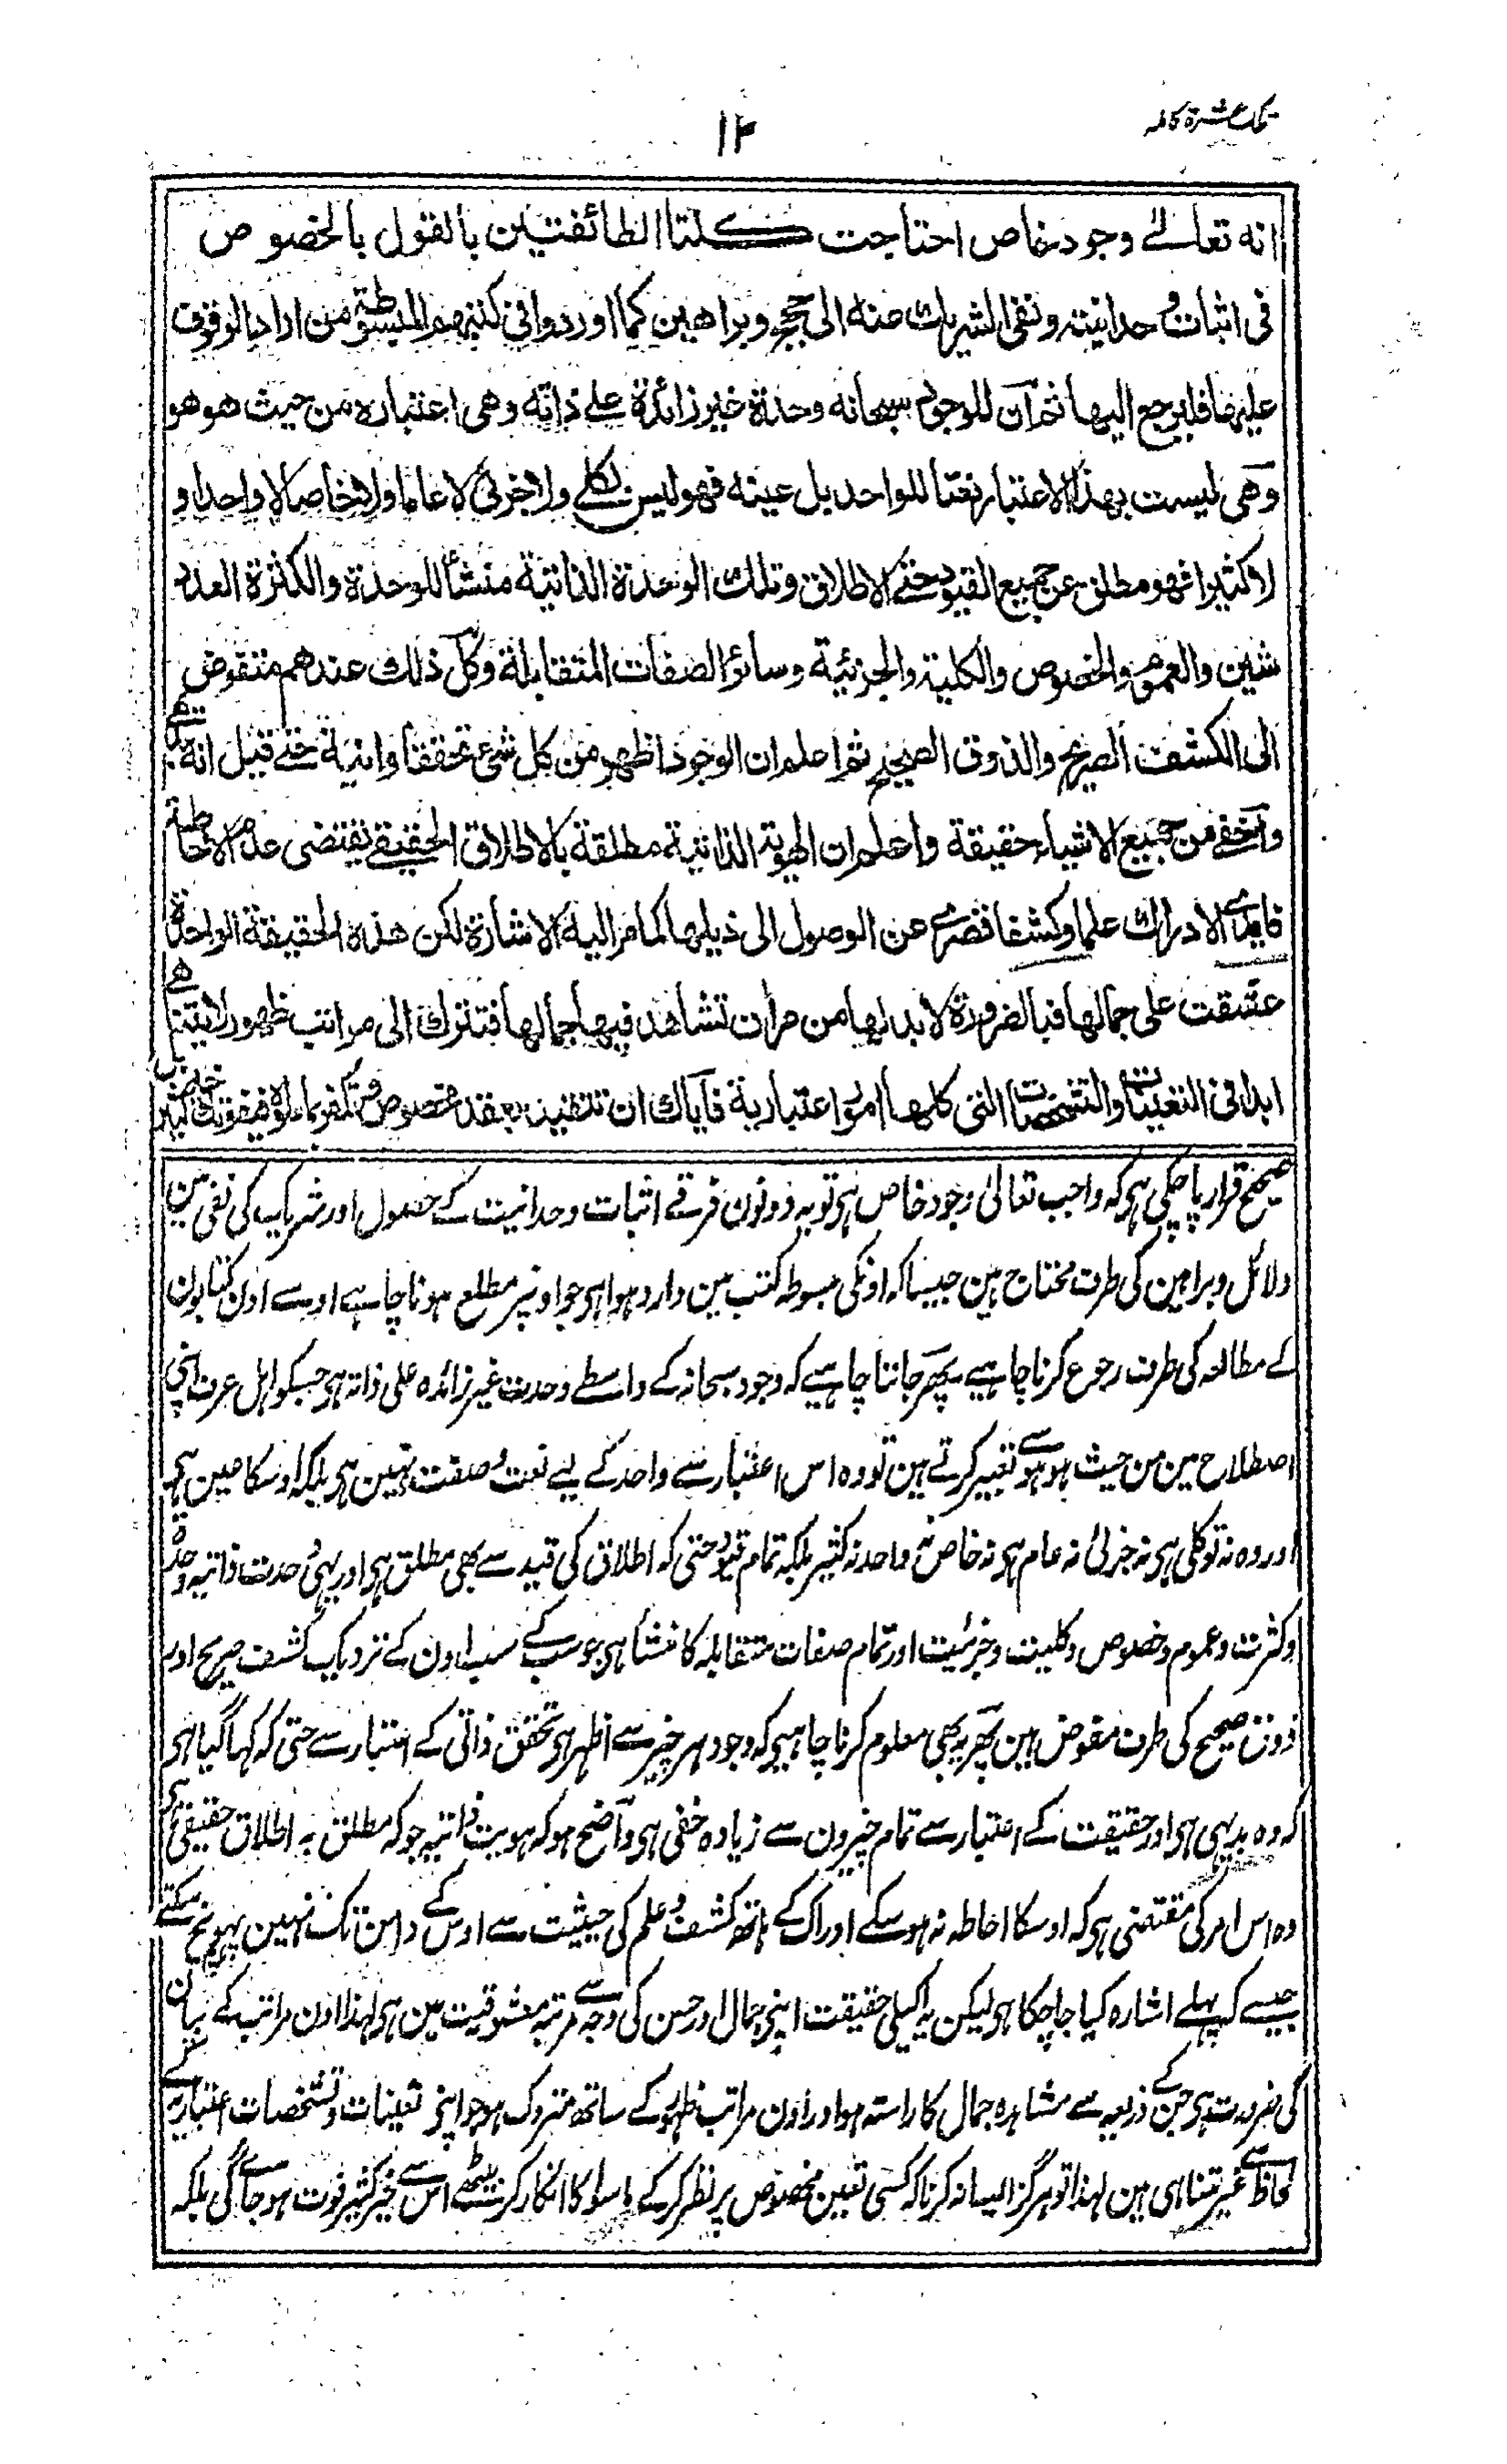 تلک عشرة کاملہ
١٢
انه تعالے وجود خاص احتاجت كلتا الطائفتين بالقول بالخصوص
فی اثبات وحدانيته ونفی الشريك عنه الی حجج وبراهين كما اوردوا فی كتبهم المبسوطة من اراد الوقوف
عليها فليرجع اليها ثم ان للوجود سبحانه وحدة غير زائدة علے ذاته وهی اعتباره من حيث هو هو
وهی ليست بهذا الاعتبار نعتا للواحد بل عينه فهو ليس بكلے ولا جزئی لا عاما ولا خاصا لا واحدا و
لا كثيرا فهو مطلق عن جميع القيود حتے الاطلاق وتلك الوحدة الذاتية منشأ للوحدة والكثرة العدد
شين والعموم والخصوص والكلية والجزئية وسائر الصفات المتقابلة وكل ذلك عندهم متفوض
الی الكشف الصريح والذوق الصحيح ثم اعلم ان الوجود اظهر من كل شیء تحققا وانية حتے قيل انه بديهے
واخفے من جميع الاشياء حقيقة واعلم ان الهوية الذاتية مطلقة بالاطلاق الحقيقے يقتضی عدم الاحاطة
فايدی الادراك علما وكشفا قصرے عن الوصول الی ذيلها كما مر اليه الاشارة لكن هذه الحقيقة الواحدة
عشقت علی جمالها فبالضرورة لا بد لها من مرأت تشاهد فيها جمالها فتترك الی مراتب ظهور لا يتناهے
ابدا فی التعينات والتشخصات التی كلها امور اعتبارية فاياك ان تتقيد بعقد مخصوص وتكفر بما سواه فيفوتك خير كثير
صحیح قرار پا چکی ہی کہ واجب تعالیٰ وجود خاص ہی تو یہ دونون فرقے اثبات وحدانیت کے حصول اور شریک کی نفی مین
دلائل و براہین کی طرف محتاج ہین جیسا کہ اونکی مبسوطہ کتب مین وارد ہوا ہی جو اونپر مطلع ہونا چاہے اوسے اون کتابون
کے مطالعہ کی طرف رجوع کرنا چاہیے پھر جاننا چاہیے کہ وجود سبحانہ کے واسطے وحدت غیر زائدہ علی ذاتہ ہی جسکو اہل عرف اپنی
اصطلاح مین من حیث ہو ہو سے تعبیر کرتے ہین تو وہ اس اعتبار سے واحد کے لیے نعت و صفت نہین ہی بلکہ اوسکا عین ہی
اور وہ نہ تو کلی ہی نہ جزئی نہ عام ہی نہ خاص نہ واحد نہ کثیر بلکہ تمام قیود حتی کہ اطلاق کی قید سے بھی مطلق ہی اور یہی وحدت ذاتیہ وحدة
و کثرت و عموم و خصوص و کلیت و جزئیت اور تمام صفات متقابلہ کا منشأ ہی جو سب کے سب اون کے نزدیک کشف صریح اور
ذوق صحیح کی طرف مفوض ہین پھر یہ بھی معلوم کرنا چاہیے کہ وجود ہر چیز سے اظہر ہی تحقق ذاتی کے اعتبار سے حتی کہ کہا گیا ہی
کہ وہ بدیہی ہی اور حقیقت کے اعتبار سے تمام چیزون سے زیادہ خفی ہی واضح ہو کہ ہویت ذاتیہ جو کہ مطلق بہ اطلاق حقیقی ہی
وہ اس امر کی مقتضی ہی کہ اوسکا احاطہ نہ ہو سکے ادراک کے ہاتھ کشف و علم کی حیثیت سے اوس کے دامن تک نہین پہونچ سکتے
جیسے کہ پہلے اشارہ کیا جا چکا ہی لیکن یہ اکیلی حقیقت اپنی جمال اور حسن کی وجہ سے مرتبہ معشوقیت مین ہی لہذا اون مراتب کے بیان
کی ضرورت ہی جن کے ذریعہ سے مشاہدہ جمال کا راستہ ہو اور اون مراتب ظہور کے ساتھ متروک ہو جو اپنے تعینات و تشخصات اعتباریہ کے
لحاظ سے غیر متناہی ہین لہذا تو ہرگز ایسا نہ کرنا کہ کسی تعین مخصوص پر نظر کر کے ماسوا کا انکار کر بیٹھے اس سے خیر کثیر فوت ہو جائے گی بلکہ